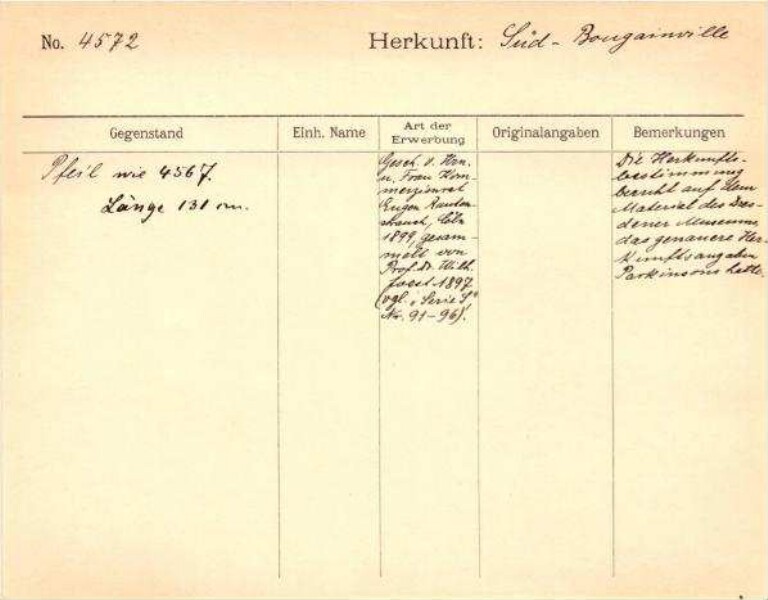 No. 4572
Herkunft: Süd-Bougainville
Gegenstand
Einh. Name
Art der
Erwerbung
Originalangaben
Bemerkungen
Pfeil wie 4567.
Länge 131 cm.
Gesch. v. Hrn.
u. Frau Kom-
merzienrat
Eugen Rauten-
strauch, Cöln
1899, gesam-
melt von
Prof. Dr. Wilh.
Joest 1897
(vgl. "Serie S"
Nr. 91-96).
Die Herkunfts-
bestimmung
beruht auf dem
Material des Dres-
dener Museums,
das genauere Her-
kunftsangaben
Parkinsons hatte.